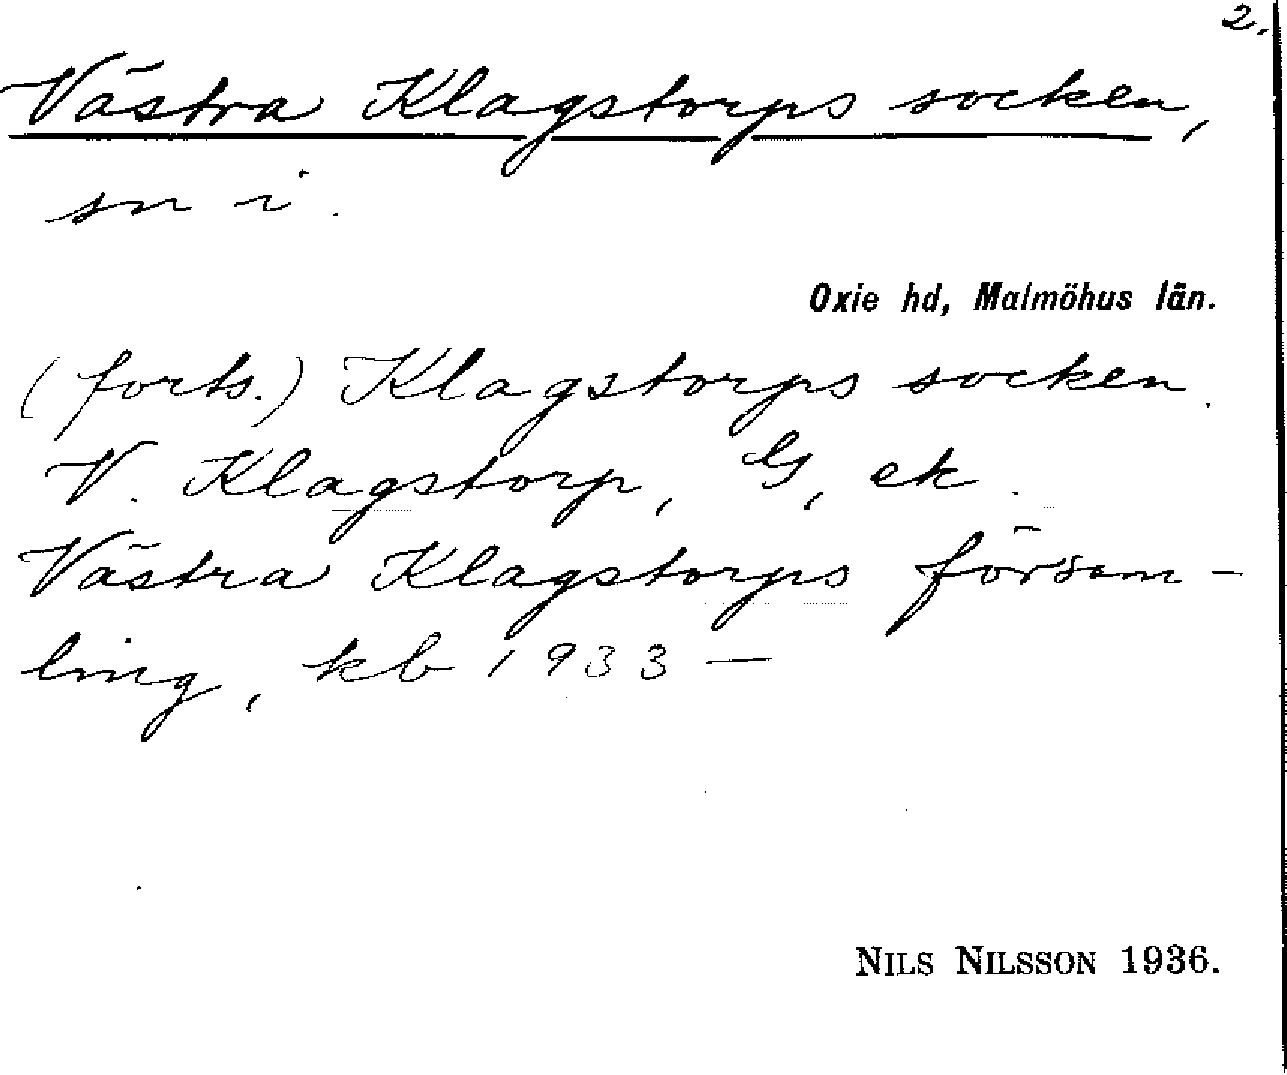 2.
Västra Klagstorps socken,
sn i.
Oxie hd, Malmöhus län.
(forts.) Klagstorps socken.
V. Klagstorp, G, ek.
Västra Klagstorps försam-
ling, kb 1933 —
NILS NILSSON 1936.